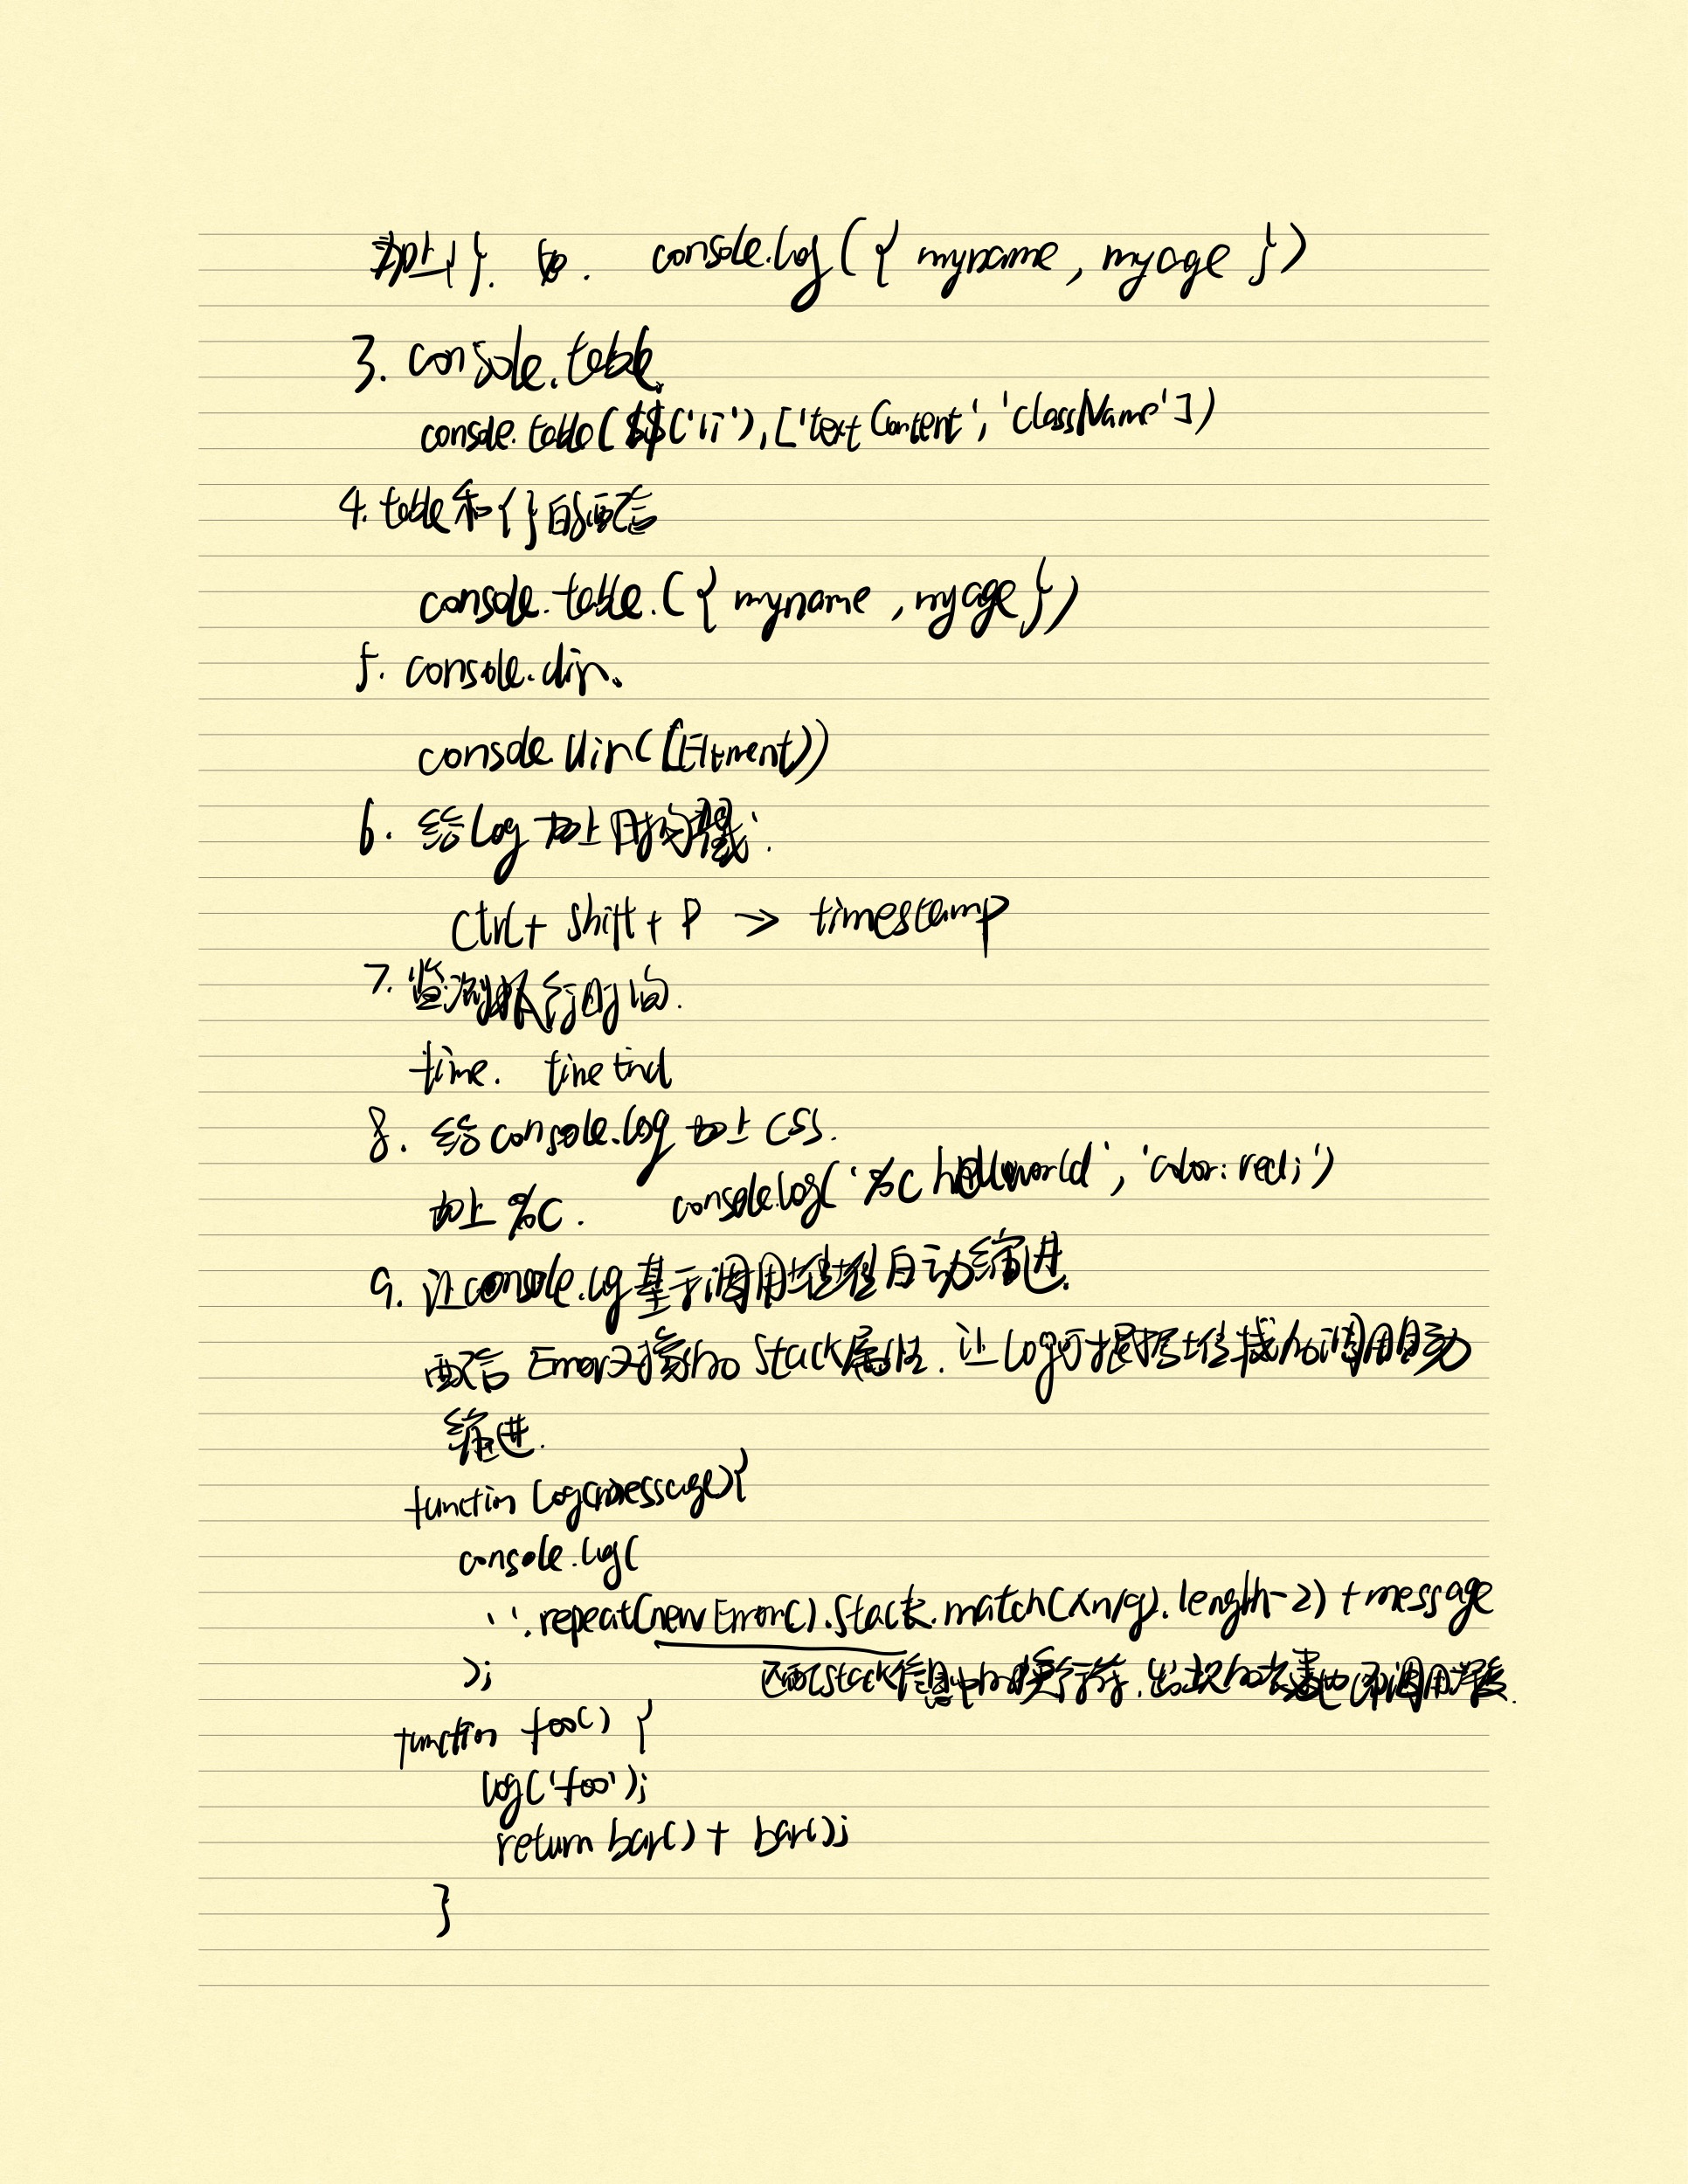 加上{}. 如. console.log({ myname, myage })
3. console.table
console.table($$('li'),['textContent','className'])
4. table和{}的配合
console.table.({ myname ,myage })
5. console.dir.
console.dir([Element))
6. 给log加上时间戳:
Ctrl+ Shift+ P -> timestamp
7. 监测执行时间.
time. timeEnd
8. 给console.log加上CSS.
加上%c. console.log('%c helloworld', 'color: red;')
9. 让console.log基于调用堆栈自动缩进.
配合 Error对象的 Stack属性. 让log可根据堆栈的调用自动
缩进.
function log(message){
console.log(
' '.repeat(new Error().Stack.match(/\n/g).length-2) + message
);
匹配Stack信息中的换行符.出现的次数也即调用深度.
function foo() {
log('foo');
return bar() + bar();
}